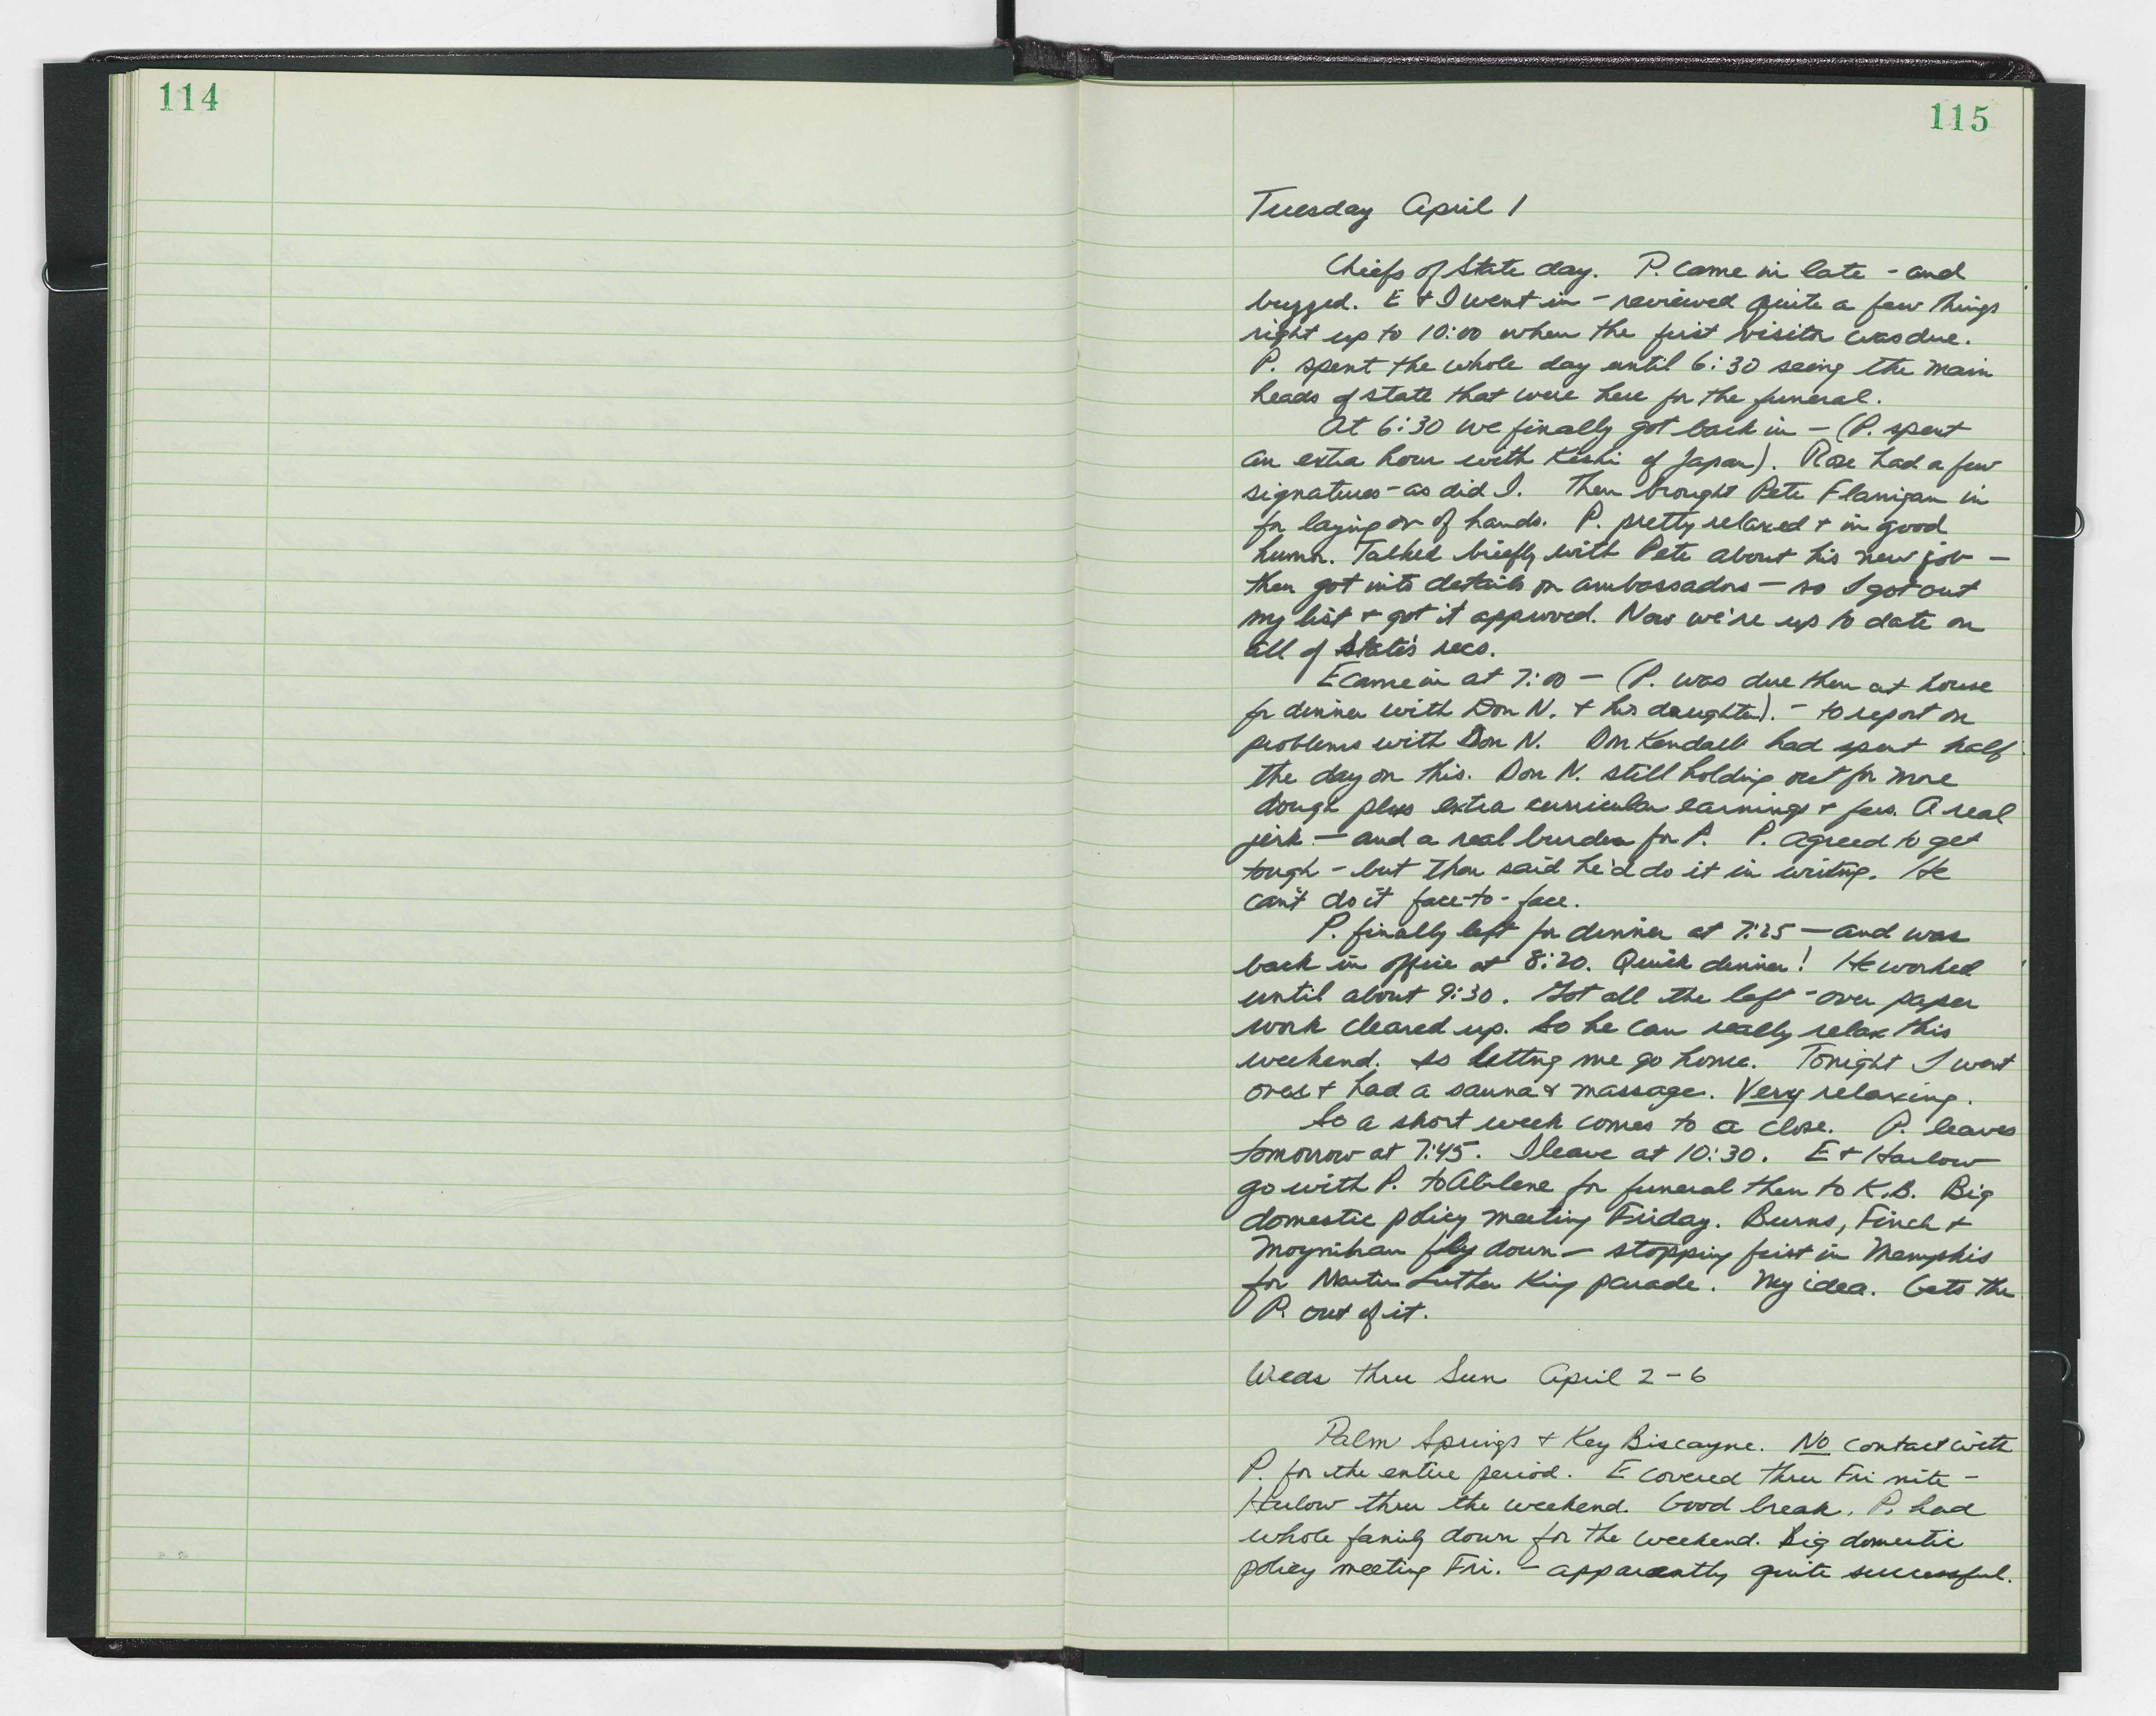 114
115
Tuesday April 1
Chiefs of State day. P. came in late - and
buzzed. E + I went in - reviewed quite a few things
right up to 10:00 when the first visitor was due.
P. spent the whole day until 6:30 seeing the main
heads of state that were here for the funeral.
At 6:30 we finally got back in - (P. spent
an extra hour with Kishi of Japan). Rose had a few
signatures - as did I. Then brought Pete Flanigan in
for laying on of hands. P. pretty relaxed + in good
humor. Talked briefly with Pete about his new job -
then got into details on ambassadors - so I got out
my list + got it approved. Now we're up to date on
all of State's recs.
E came in at 7:00 - (P. was due then at house
for dinner with Don N. + his daughter). - to report on
problems with Don N. Don Kendall had spent half
the day on this. Don N. still holding out for more
dough plus extra curricular earnings + fees. A real
jerk - and a real burden for P. P. agreed to get
tough - but then said he'd do it in writing. He
can't do it face-to-face.
P. finally left for dinner at 7:25 - and was
back in office at 8:20. Quick dinner! He worked
until about 9:30. Got all the left-over paper
work cleared up. So he can really relax this
weekend. Is letting me go home. Tonight I went
over + had a sauna + massage. Very relaxing.
So a short week comes to a close. P. leaves
tomorrow at 7:45. I leave at 10:30. E + Harlow
go with P. to Abilene for funeral then to K.B. Big
domestic policy meeting Friday. Burns, Finch +
Moynihan fly down - stopping first in Memphis
for Martin Luther King parade. My idea. Gets the
P. out of it.
Weds thru Sun April 2-6
Palm Springs + Key Biscayne. No contact with
P. for the entire period. E covered thru Fri nite -
Harlow thru the weekend. Good break. P. had
whole family down for the weekend. Big domestic
policy meeting Fri. - apparently quite successful.